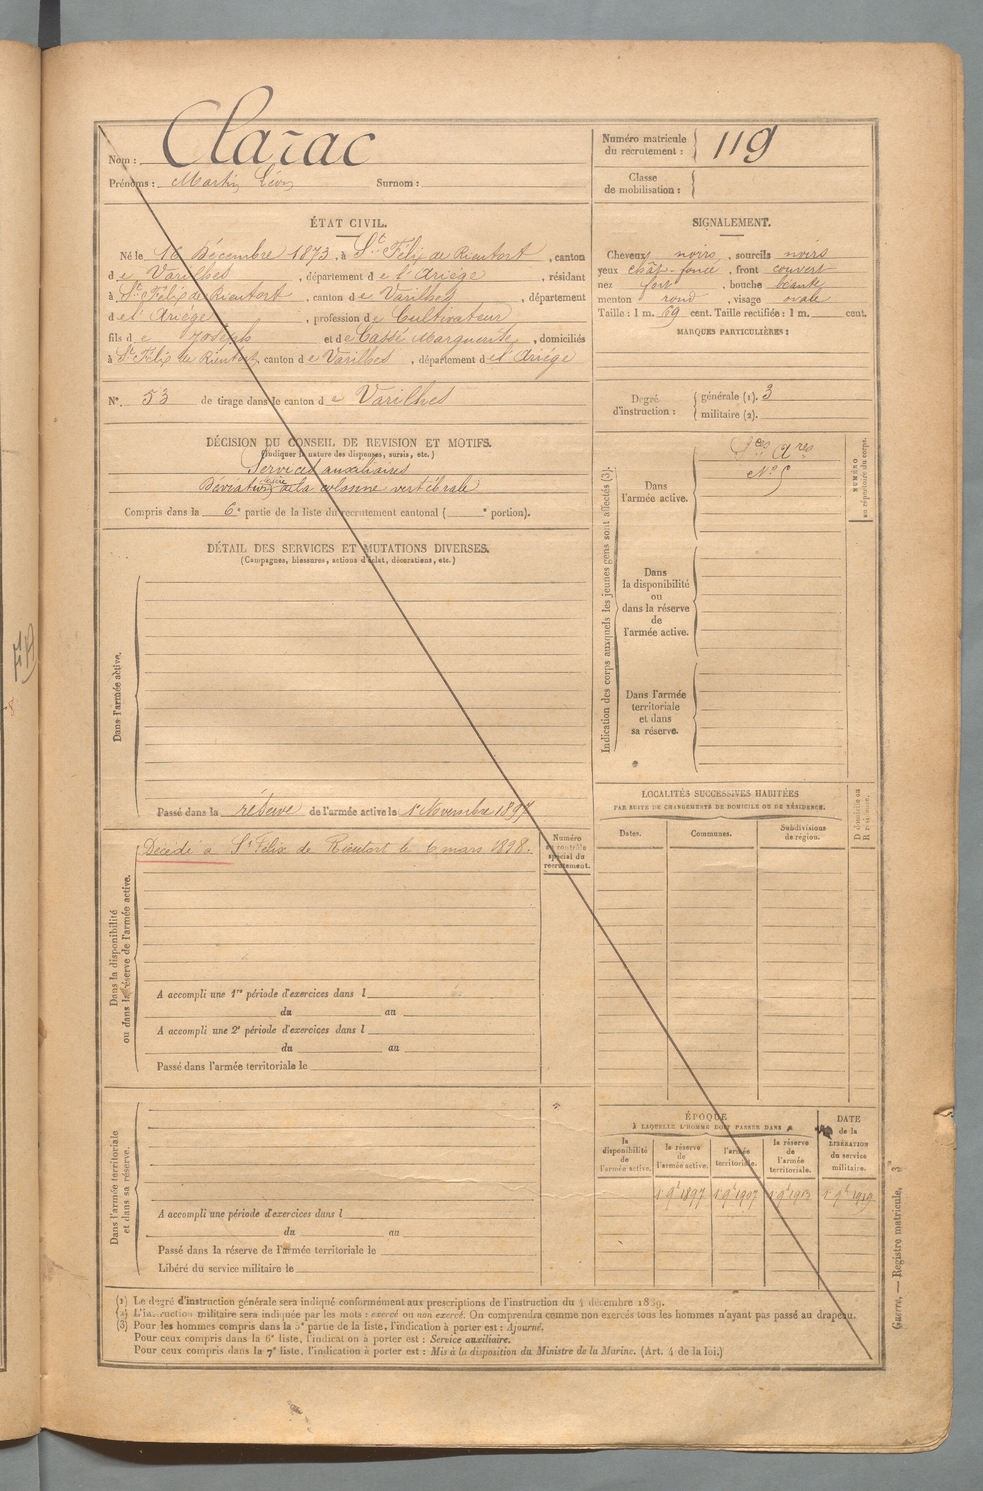 Nom : Clarac
Prénoms : Martin Léon Surnom :
Numéro matricule du recrutement : 119
Classe de mobilisation :
ÉTAT CIVIL.
Né le 16 Décembre 1873, à St Félix de Rieutort, canton
de Varilhes, département de l'Ariège, résidant
à St Félix de Rieutort, canton de Varilhes, département
de l'Ariège, profession de Cultivateur
fils de Joseph et de Cassé Marguerite, domiciliés
à St Félix de Rieutort, canton de Varilhes, département de l'Ariège
N° 53 de tirage dans le canton de Varilhes
SIGNALEMENT.
Cheveux noirs, sourcils noirs
yeux chât-foncé, front couvert
nez fort, bouche
menton rond, visage ovale
Taille : 1 m. 69 cent. Taille rectifiée : 1 m. cent.
MARQUES PARTICULIÈRES :
Degré d'instruction : générale (1). 3
militaire (2).
DÉCISION DU CONSEIL DE REVISION ET MOTIFS.
(Indiquer la nature des dispenses, sursis, etc.)
Services auxiliaires
Déviation de la colonne vertébrale
Compris dans la 6e partie de la liste du recrutement cantonal ( e portion).
DÉTAIL DES SERVICES ET MUTATIONS DIVERSES.
(Campagnes, blessures, actions d'éclat, décorations, etc.)
Dans l'armée active.
Passé dans la réserve de l'armée active le 1er Novembre 1897
Dans la disponibilité
ou dans la réserve de l'armée active.
Décédé à St Félix de Rieutort le 6 mars 1898.
Numéro
au contrôle
spécial du
recrutement.
A accompli une 1re période d'exercices dans l
du au
A accompli une 2e période d'exercices dans l
du au
Passé dans l'armée territoriale le
Dans l'armée territoriale
et dans sa réserve.
A accompli une période d'exercices dans l
du au
Passé dans la réserve de l'armée territoriale le
Libéré du service militaire le
Indication des corps auxquels les jeunes gens sont affectés (3).
Dans
l'armée active.
Ses Ares
N° 5
NUMÉRO
au répertoire du corps.
Dans
la disponibilité
ou
dans la réserve
de
l'armée active.
Dans l'armée
territoriale
et dans
sa réserve.
LOCALITÉS SUCCESSIVES HABITÉES
PAR SUITE DE CHANGEMENTS DE DOMICILE OU DE RÉSIDENCE.
D domicile ou
R résidence.
Dates. Communes. Subdivisions
de région.
ÉPOQUE
À LAQUELLE L'HOMME DOIT PASSER DANS
la
disponibilité
de
l'armée active.
la réserve
de
l'armée active.
l'armée
territoriale.
la réserve
de
l'armée
territoriale.
DATE
de la
LIBÉRATION
du service
militaire.
1 9e 1897 1 9e 1907 1 9e 1913 1 9e 1919
(1) Le degré d'instruction générale sera indiqué conformément aux prescriptions de l'instruction du 4 décembre 1889.
(2) L'instruction militaire sera indiquée par les mots : exercé ou non exercé. On comprendra comme non exercés tous les hommes n'ayant pas passé au drapeau.
(3) Pour les hommes compris dans la 5e partie de la liste, l'indication à porter est : Ajourné.
Pour ceux compris dans la 6e liste, l'indication à porter est : Service auxiliaire.
Pour ceux compris dans la 7e liste, l'indication à porter est : Mis à la disposition du Ministre de la Marine. (Art. 4 de la loi.)
Guerre. — Registre matricule, 3